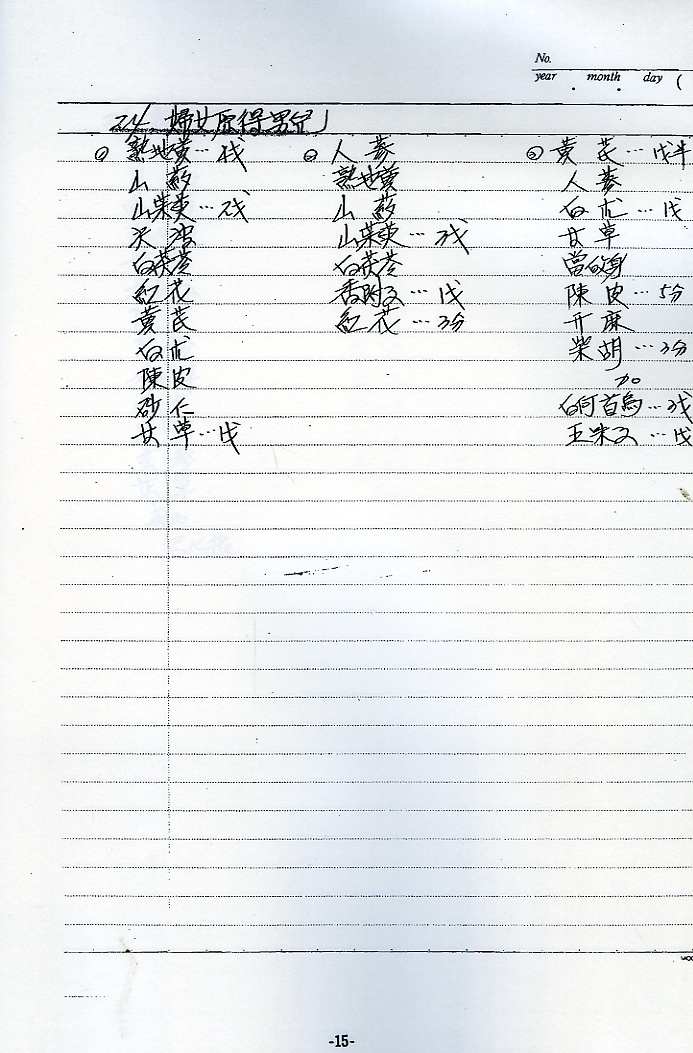 No.
year month day (
24. 婦女原得男兒」
① 熟地黃…伐
山藥
山茱萸…弐
白茯苓
紅花
黃芪
白朮
陳皮
砂仁
甘草…戋
② 人蔘
熟地黃
山藥
山茱萸…3戋
白茯苓
香附子…1戋
紅花…3分
③ 黃芪…戋半
人蔘
白朮…1戋
甘草
當歸身
陳皮…5分
升麻
柴胡…3分
加
白何首烏…3戋
五味子…1戋
-15-